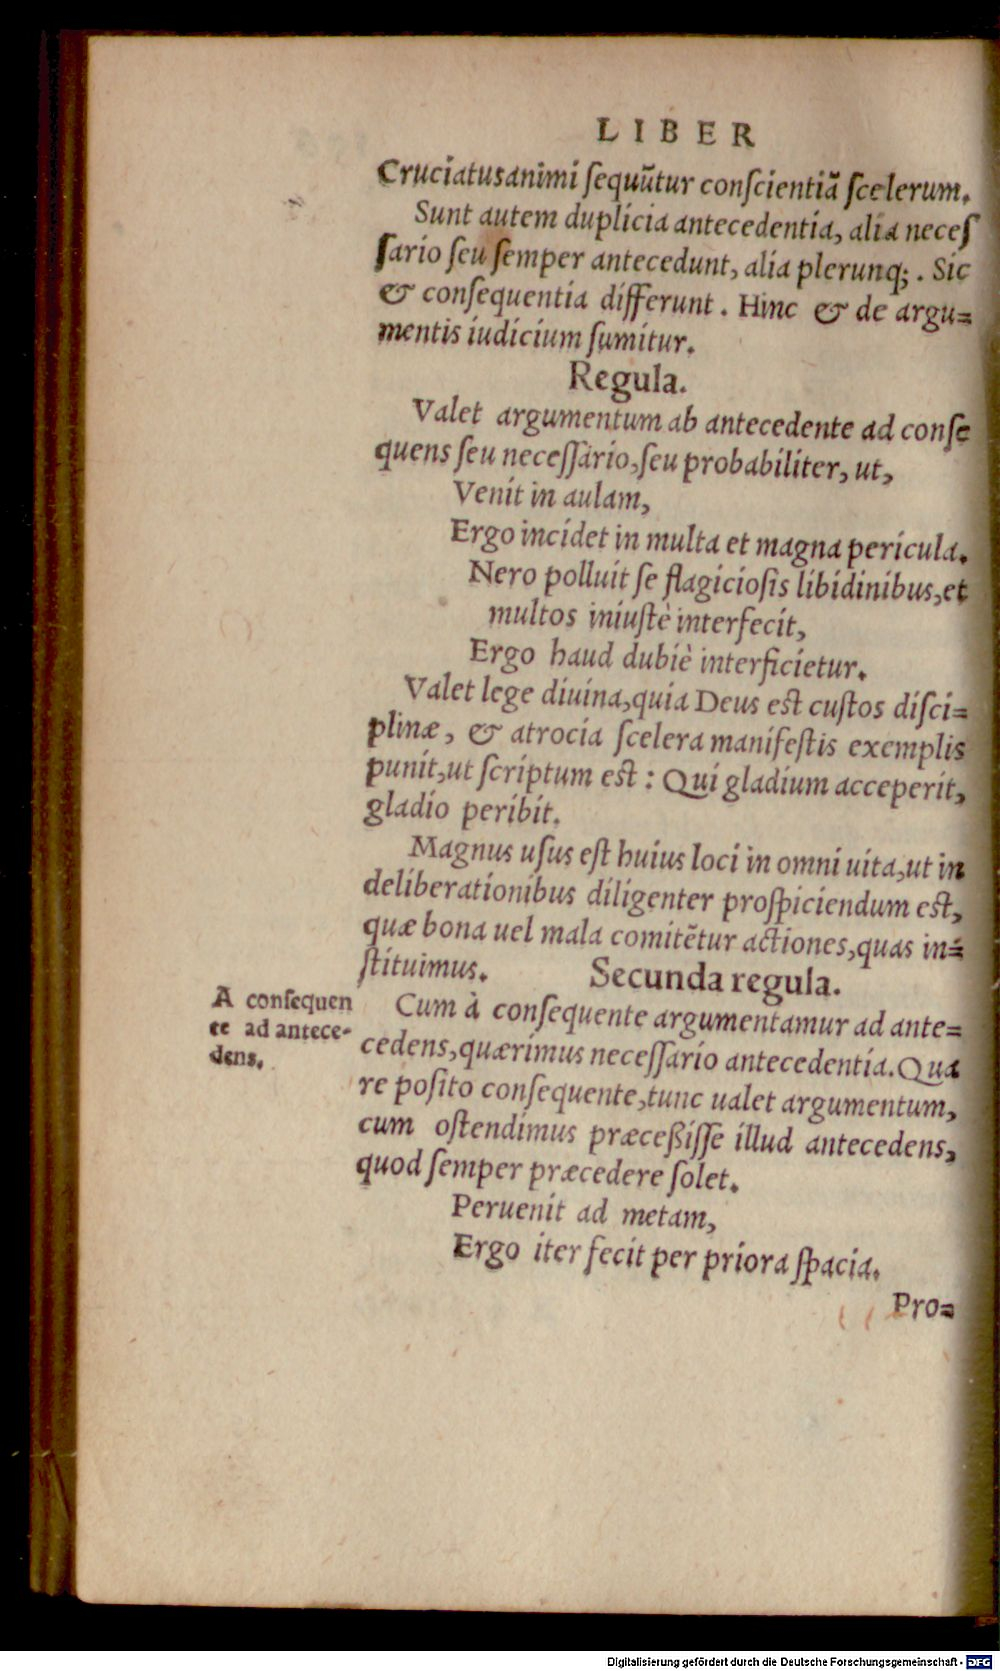 LIBER
Cruciatus animi ſequūtur conſcientiā ſcelerum.
Sunt autem duplicia antecedentia, alia neceſ
ſario ſeu ſemper antecedunt, alia plerunq;. Sic
& conſequentia differunt. Hinc & de argu=
mentis iudicium ſumitur.
Regula.
Valet argumentum ab antecedente ad conſe
quens ſeu neceſſario, ſeu probabiliter, ut,
Venit in aulam,
Ergo incidet in multa et magna pericula.
Nero polluit ſe flagicioſis libidinibus, et
multos iniuſtè interfecit,
Ergo haud dubiè interficietur.
Valet lege diuina, quia Deus eſt cuſtos diſci=
plinæ, & atrocia ſcelera manifeſtis exemplis
punit, ut ſcriptum eſt: Qui gladium acceperit,
gladio peribit.
Magnus uſus eſt huius loci in omni uita, ut in
deliberationibus diligenter proſpiciendum eſt,
quæ bona uel mala comitētur actiones, quas in=
ſtituimus.
Secunda regula.
A conſequen
te ad antece-
dens.
Cum à conſequente argumentamur ad ante=
cedens, quærimus neceſſario antecedentia. Qua
re poſito conſequente, tunc ualet argumentum,
cum oſtendimus præceßiſſe illud antecedens,
quod ſemper præcedere ſolet.
Peruenit ad metam,
Ergo iter fecit per priora ſpacia.
Pro=
Digitalisierung gefördert durch die Deutsche Forschungsgemeinschaft - DFG